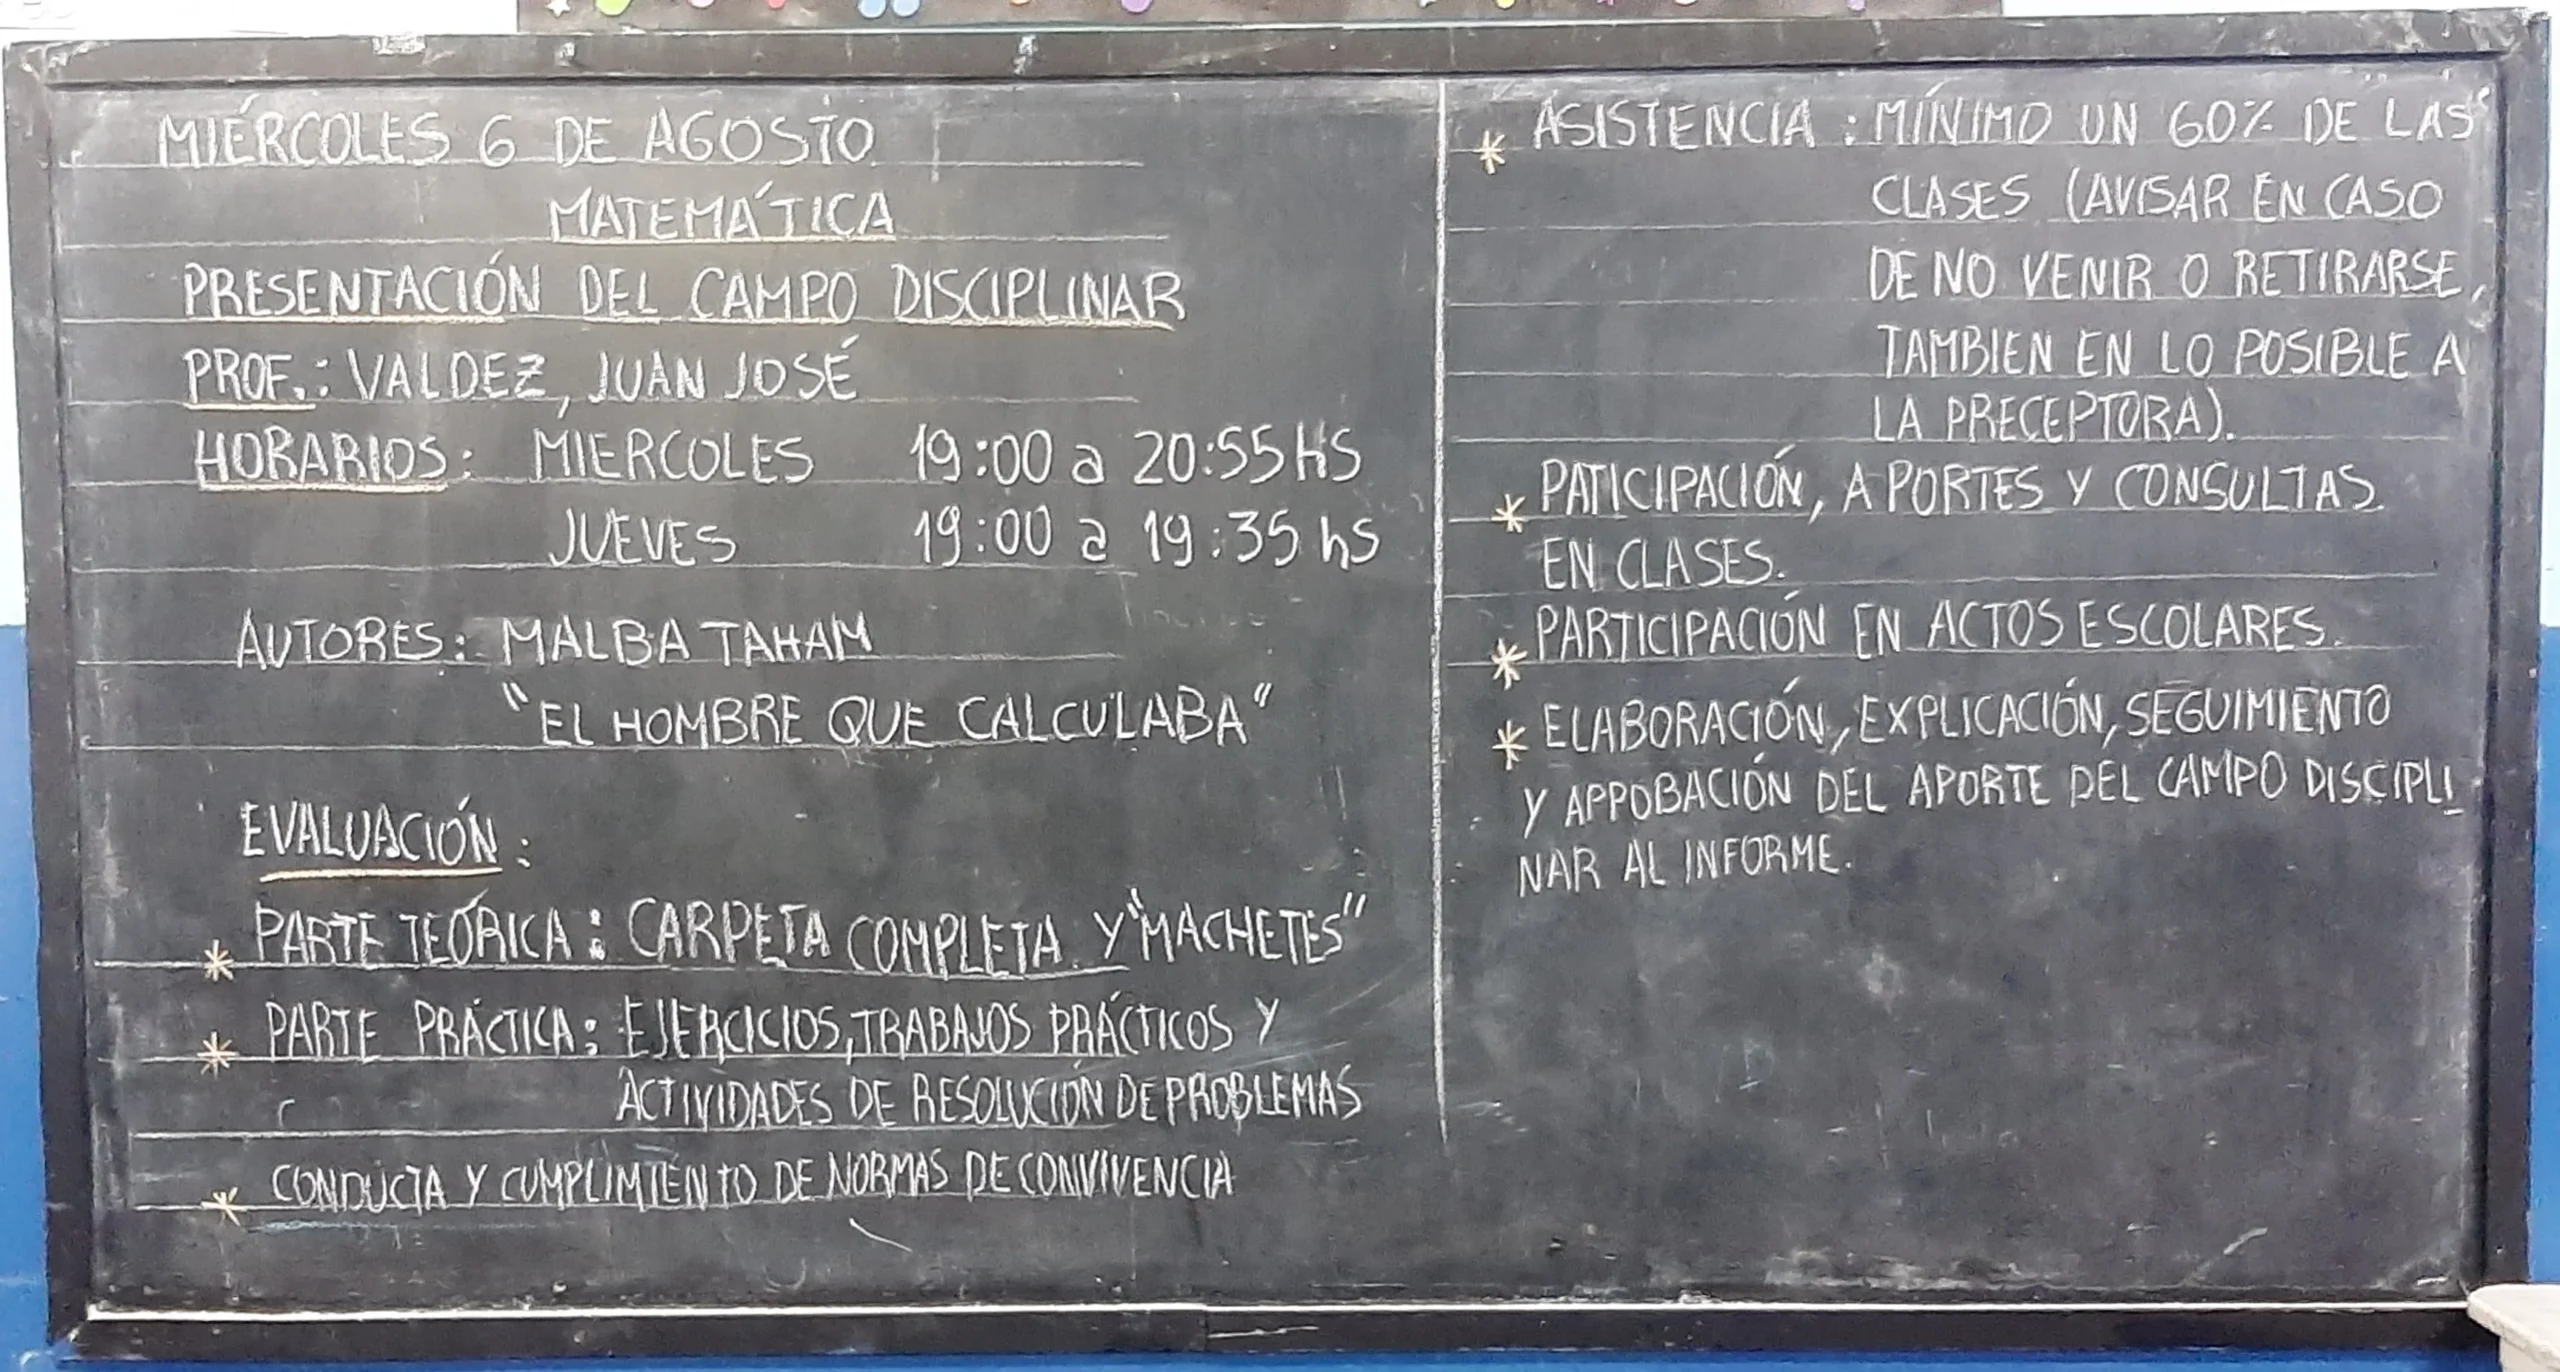 MIÉRCOLES 6 DE AGOSTO
MATEMÁTICA
PRESENTACIÓN DEL CAMPO DISCIPLINAR
PROF.: VALDEZ, JUAN JOSÉ
HORARIOS: MIERCOLES 19:00 a 20:55 HS
JUEVES 19:00 a 19:35 hS
AUTORES: MALBA TAHAM
"EL HOMBRE QUE CALCULABA"
EVALUACIÓN:
* PARTE TEÓRICA: CARPETA COMPLETA Y "MACHETES"
* PARTE PRÁCTICA: EJERCICIOS, TRABAJOS PRÁCTICOS Y
ACTIVIDADES DE RESOLUCIÓN DE PROBLEMAS
* CONDUCTA Y CUMPLIMIENTO DE NORMAS DE CONVIVENCIA
* ASISTENCIA: MÍNIMO UN 60% DE LAS
CLASES (AVISAR EN CASO
DE NO VENIR O RETIRARSE,
TAMBIEN EN LO POSIBLE A
LA PRECEPTORA).
* PATICIPACIÓN, APORTES Y CONSULTAS
EN CLASES.
* PARTICIPACIÓN EN ACTOS ESCOLARES.
* ELABORACIÓN, EXPLICACIÓN, SEGUIMIENTO
Y APPOBACIÓN DEL APORTE DEL CAMPO DISCIPLI
NAR AL INFORME.